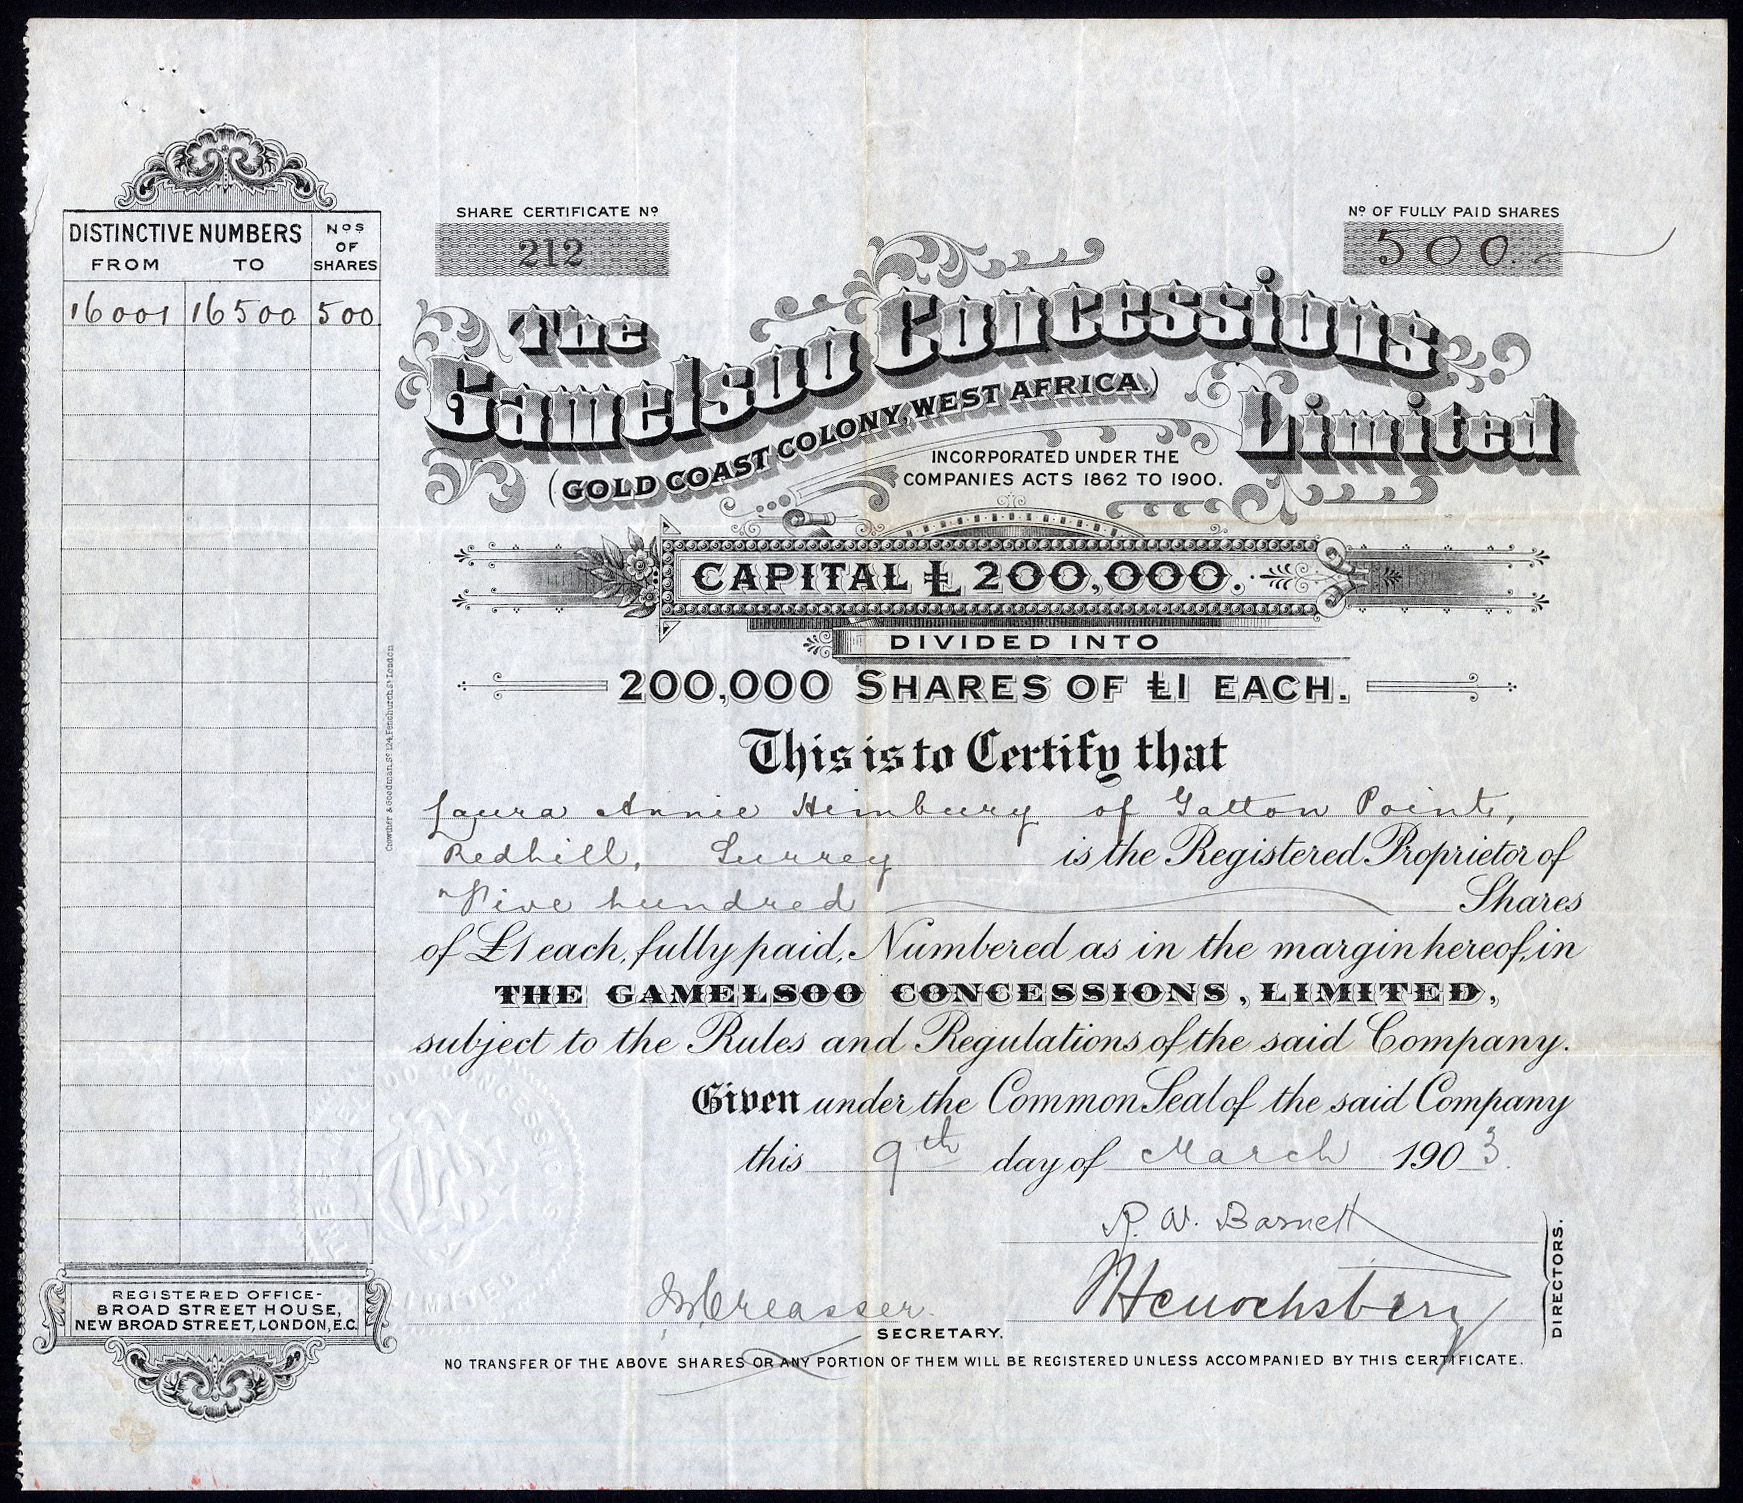 DISTINCTIVE NUMBERS
FROM TO
Nos OF SHARES
16001 16500 500
SHARE CERTIFICATE No
212
No OF FULLY PAID SHARES
500
The
Gamelsoo Concessions
Limited
(GOLD COAST COLONY, WEST AFRICA.)
INCORPORATED UNDER THE
COMPANIES ACTS 1862 TO 1900.
CAPITAL £200,000.
DIVIDED INTO
200,000 SHARES OF £1 EACH.
This is to Certify that
Laura Annie Himbury of Gatton Point,
Redhill, Surrey is the Registered Proprietor of
Five hundred Shares
of £1 each, fully paid, Numbered as in the margin hereof, in
THE GAMELSOO CONCESSIONS, LIMITED,
subject to the Rules and Regulations of the said Company.
Given under the Common Seal of the said Company
this 9th day of March 1903.
R. W. Barnett
Henochsberg
DIRECTORS.
Creasser
SECRETARY.
NO TRANSFER OF THE ABOVE SHARES OR ANY PORTION OF THEM WILL BE REGISTERED UNLESS ACCOMPANIED BY THIS CERTIFICATE.
REGISTERED OFFICE-
BROAD STREET HOUSE,
NEW BROAD STREET, LONDON, E.C.
Crowther & Goodman, St. 124, Fenchurch St. London